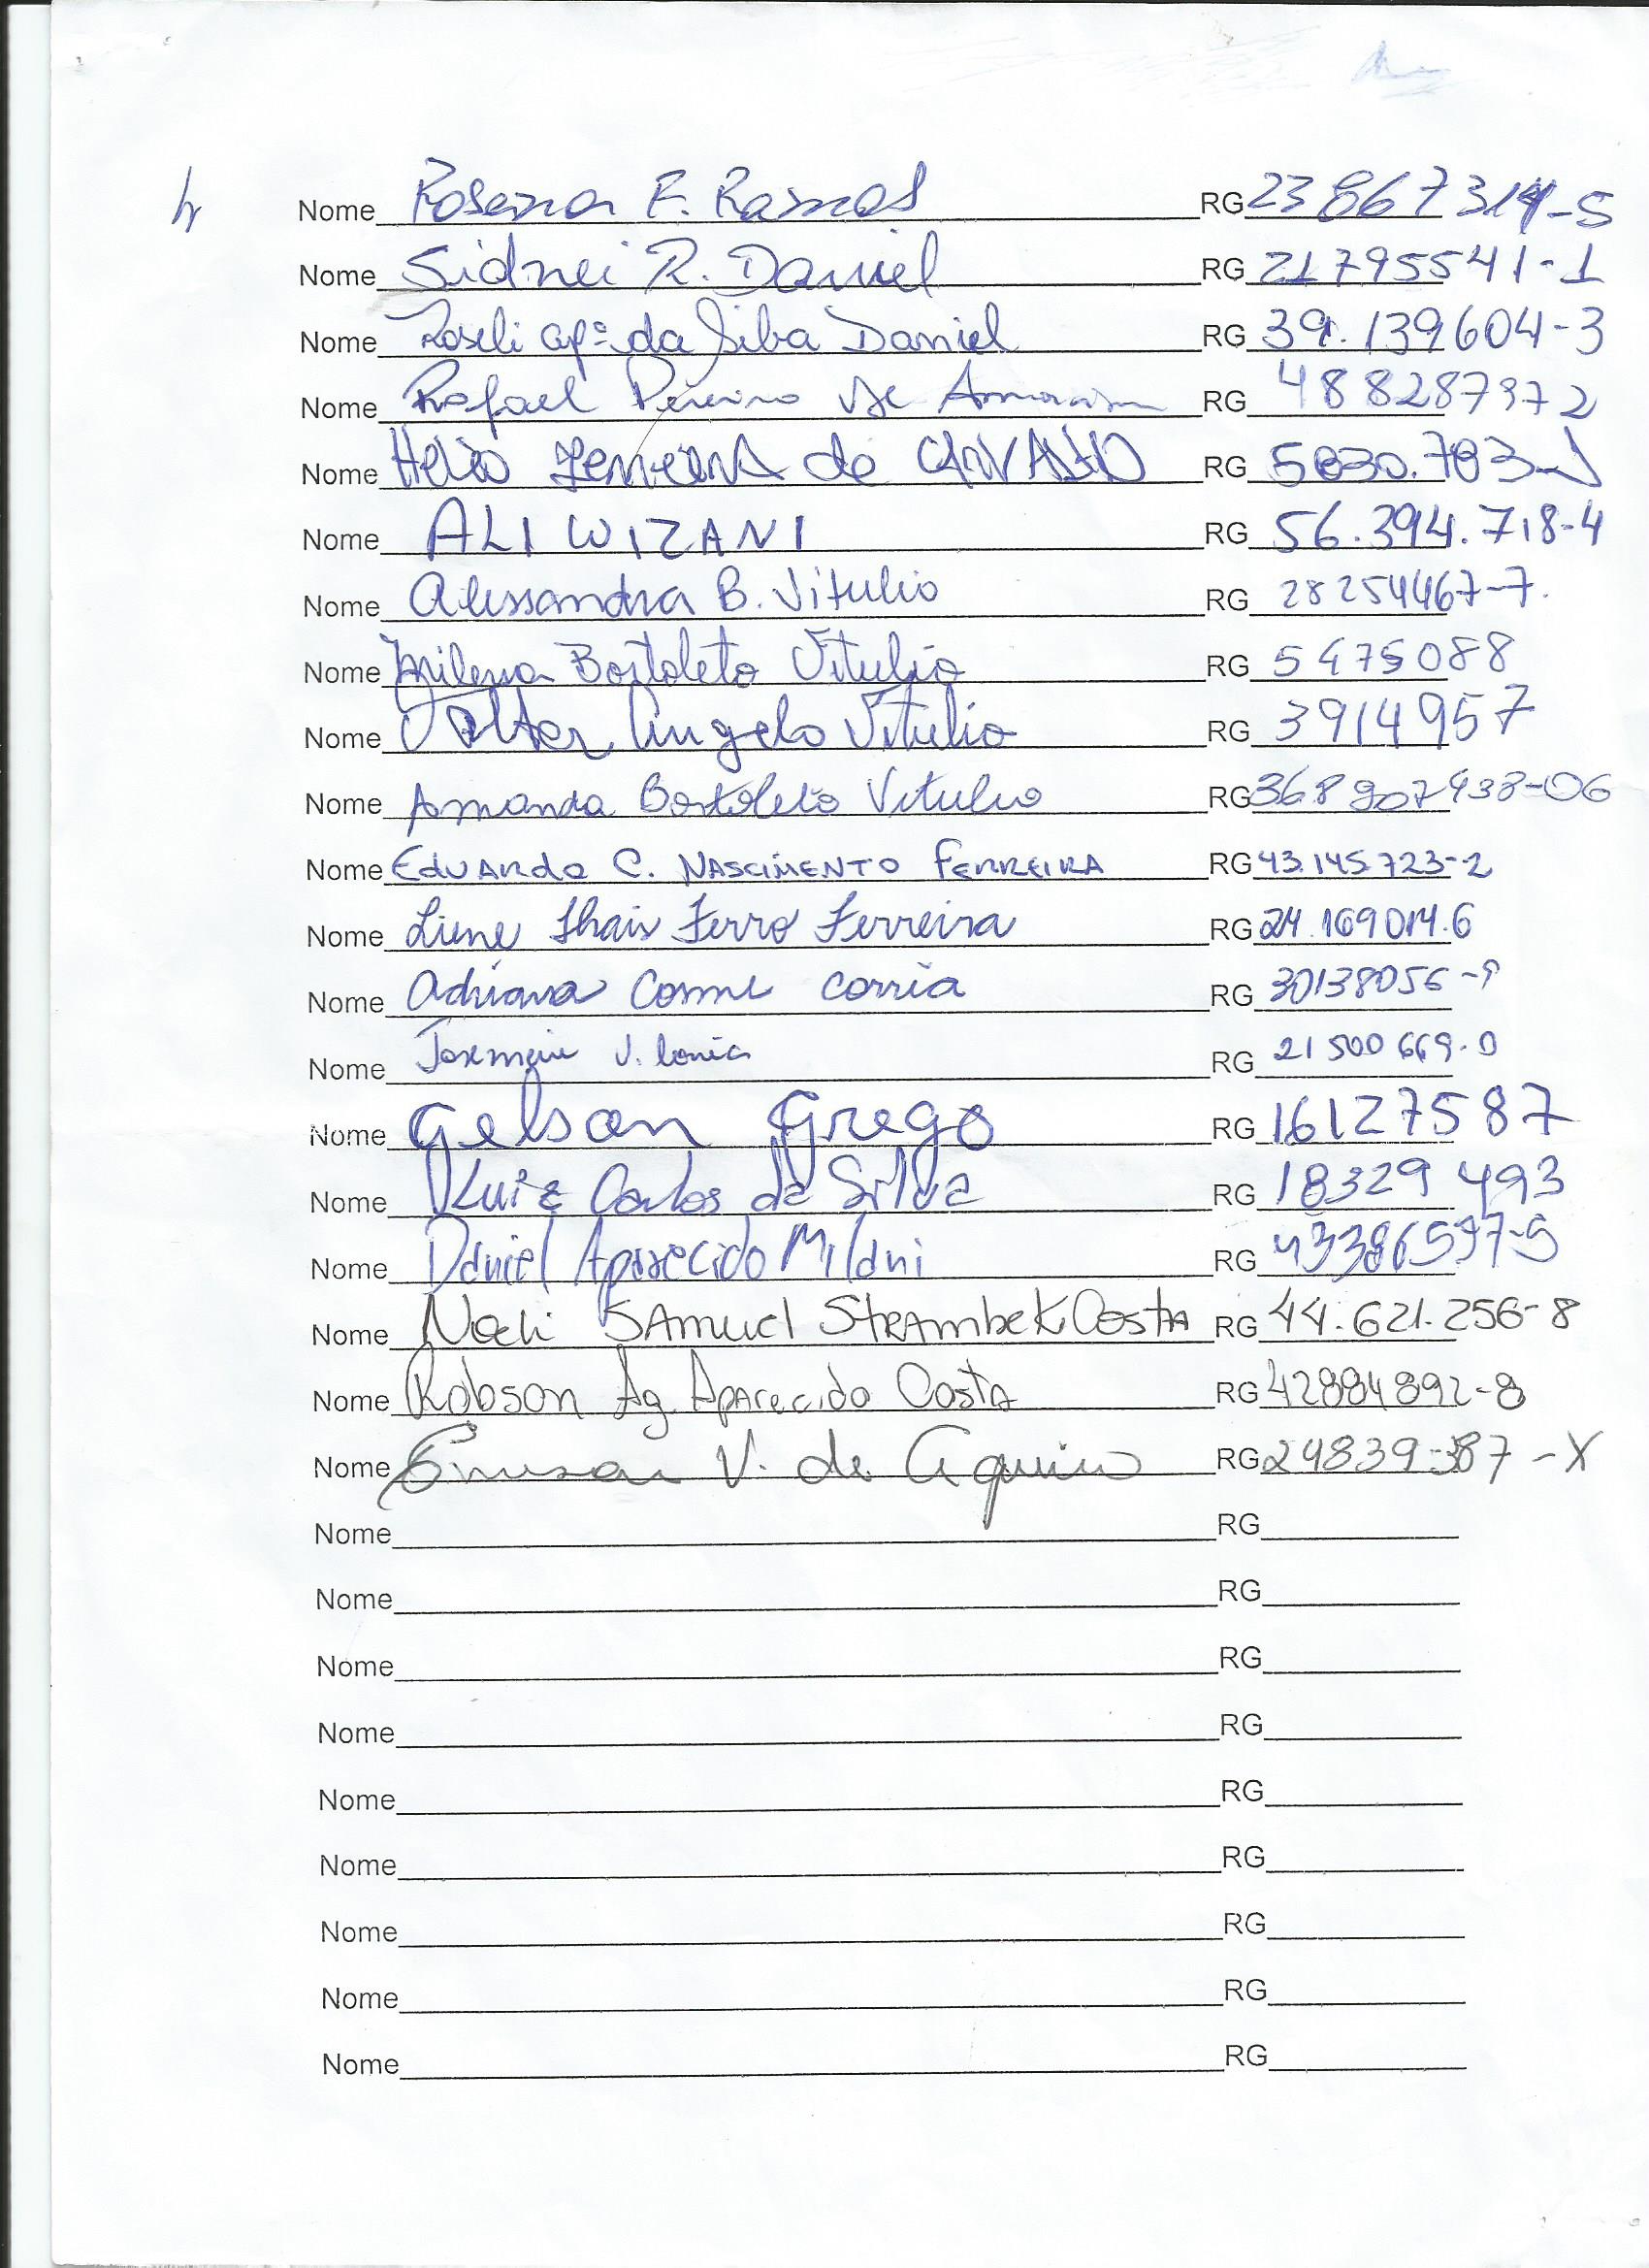 Nome Rosana F. Ramos RG 23 867 314-5
Nome Sidnei R. Daniel RG 21795541-1
Nome Roseli apª da Silva Daniel RG 39.139604-3
Nome Rafael Pereira de Amorim RG 488287372
Nome Helio Ferreira de RG
Nome ALI WIZANI RG 56.394.718-4
Nome Alessandra B. Vitulio RG 28254467-7.
Nome Milena Bortoleto Vitulio RG 5475088
Nome Valter Angelo Vitulio RG 3914957
Nome Amanda Bortoleto Vitulio RG
Nome Eduardo C. NASCIMENTO FERREIRA RG 43.145.723-2
Nome Liene Thais Ferro Ferreira RG 24.169014.6
Nome Adriana Cosme Corrêa RG
Nome V. RG 21 500 669-0
Nome Gelson Grego RG 16127587
Nome Luiz Carlos da Silva RG 18329 493
Nome Daniel Aparecido Milani RG 43386597-5
Nome Noeli SAmuel StrambeK Costa RG 44.621.256-8
Nome Robson Ag. Aparecido Costa RG 42884892-8
Nome V. de Aquino RG 24839387-X
Nome RG
Nome RG
Nome RG
Nome RG
Nome RG
Nome RG
Nome RG
Nome RG
Nome RG